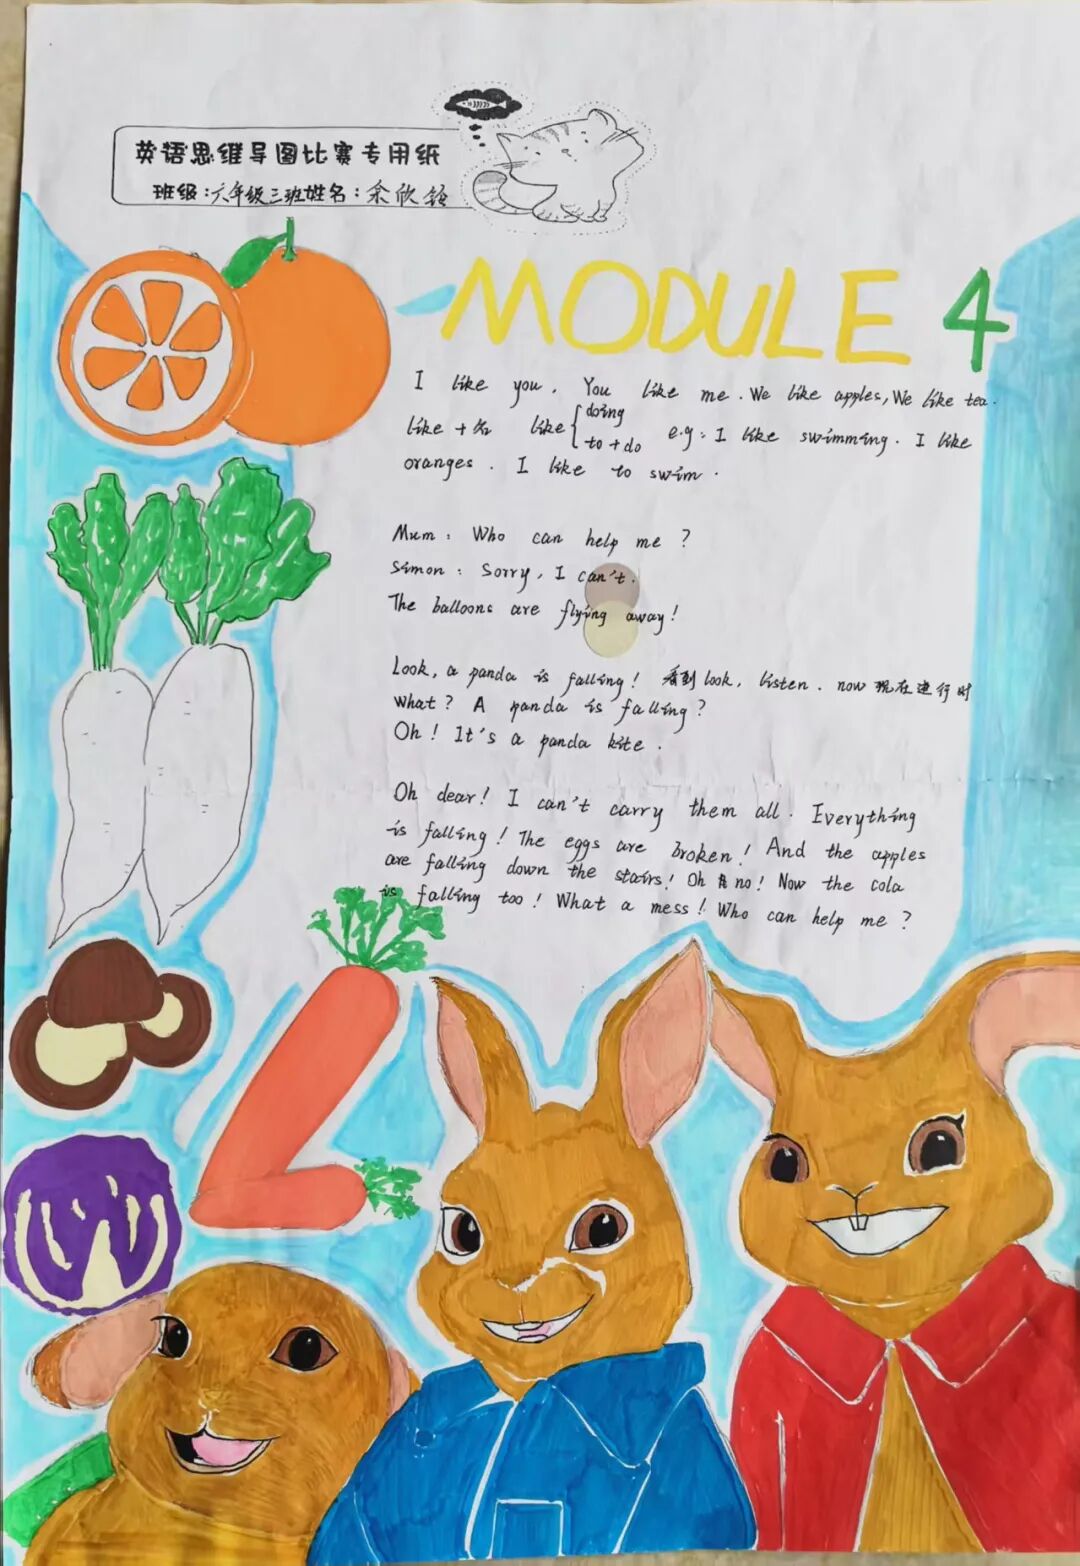 英语思维导图比赛专用纸
班级:六年级三班姓名:余欣铃
MODULE 4
I like you. You like me. We like apples, We like tea.
like + 名 like { doing
to + do e.g: I like swimming. I like
oranges. I like to swim.
Mum: Who can help me?
Simon: Sorry, I can't.
The balloons are flying away!
Look, a panda is falling! 看到look, listen. now 现在进行时
What? A panda is falling?
Oh! It's a panda kite.
Oh dear! I can't carry them all. Everything
is falling! The eggs are broken! And the apples
are falling down the stairs! Oh no! Now the cola
is falling too! What a mess! Who can help me?